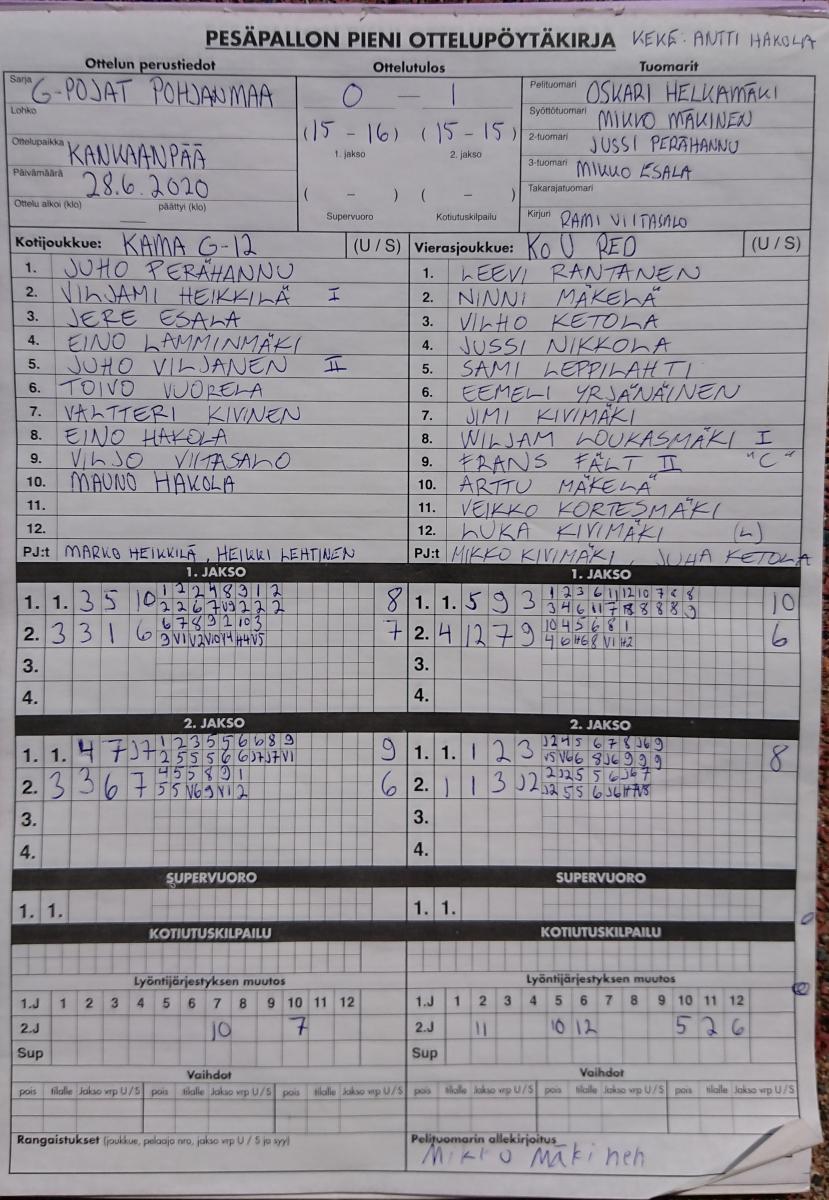 PESÄPALLON PIENI OTTELUPÖYTÄKIRJA KEKE: ANTTI HAKOLA
Ottelun perustiedot Ottelutulos Tuomarit
Sarja G-POJAT POHJANMAA
Lohko
Ottelupaikka KANKAANPÄÄ
Päivämäärä 28.6.2020
Ottelu alkoi (klo) päättyi (klo)
0 — 1
(15 - 16) (15 - 15)
1. jakso 2. jakso
( - ) ( - )
Supervuoro Kotiutuskilpailu
Pelituomari OSKARI HELKAMÄKI
Syöttötuomari MIKKO MÄKINEN
2-tuomari JUSSI PERÄHANNU
3-tuomari MIKKO ESALA
Takarajatuomari
Kirjuri RAMI VIITASALO
Kotijoukkue: KAMA G-12 (U / S)
1. JUHO PERÄHANNU
2. VILJAMI HEIKKILÄ I
3. JERE ESALA
4. EINO LAMMINMÄKI
5. JUHO VILJANEN II
6. TOIVO VUORELA
7. VALTTERI KIVINEN
8. EINO HAKOLA
9. VILJO VIITASALO
10. MAUNO HAKOLA
11.
12.
PJ:t MARKO HEIKKILÄ, HEIKKI LEHTINEN
Vierasjoukkue: KoU RED (U / S)
1. LEEVI RANTANEN
2. NINNI MÄKELÄ
3. VILHO KETOLA
4. JUSSI NIKKOLA
5. SAMI LEPPILAHTI
6. EEMELI YRJÄNÄINEN
7. JIMI KIVIMÄKI
8. WILJAM LOUKASMÄKI I
9. FRANS FÄLT II "C"
10. ARTTU MÄKELÄ
11. VEIKKO KORTESMÄKI
12. LUKA KIVIMÄKI (L)
PJ:t MIKKO KIVIMÄKI, JUHA KETOLA
1. JAKSO
1. 1. 3 5 10 8
2. 3 3 1 6 7
3.
4.
1. JAKSO
1. 1. 5 9 3 10
2. 4 12 7 9 6
3.
4.
2. JAKSO
1. 1. 4 7 J7 9
2. 3 3 6 7 6
3.
4.
2. JAKSO
1. 1. 1 2 3 8
2. 1 1 3 J2
3.
4.
SUPERVUORO SUPERVUORO
1. 1. 1. 1.
KOTIUTUSKILPAILU KOTIUTUSKILPAILU
Lyöntijärjestyksen muutos
1.J 1 2 3 4 5 6 7 8 9 10 11 12
2.J 10 7
Sup
Lyöntijärjestyksen muutos
1.J 1 2 3 4 5 6 7 8 9 10 11 12
2.J 11 10 12 5 2 6
Sup
Vaihdot Vaihdot
pois tilalle Jakso vrp U / S pois tilalle Jakso vrp U / S pois tilalle Jakso vrp U / S
pois tilalle Jakso vrp U / S pois tilalle Jakso vrp U / S pois tilalle Jakso vrp U / S
Rangaistukset (joukkue, pelaaja nro, jakso vrp U / S ja syy)
Pelituomarin allekirjoitus
Mikko Mäkinen